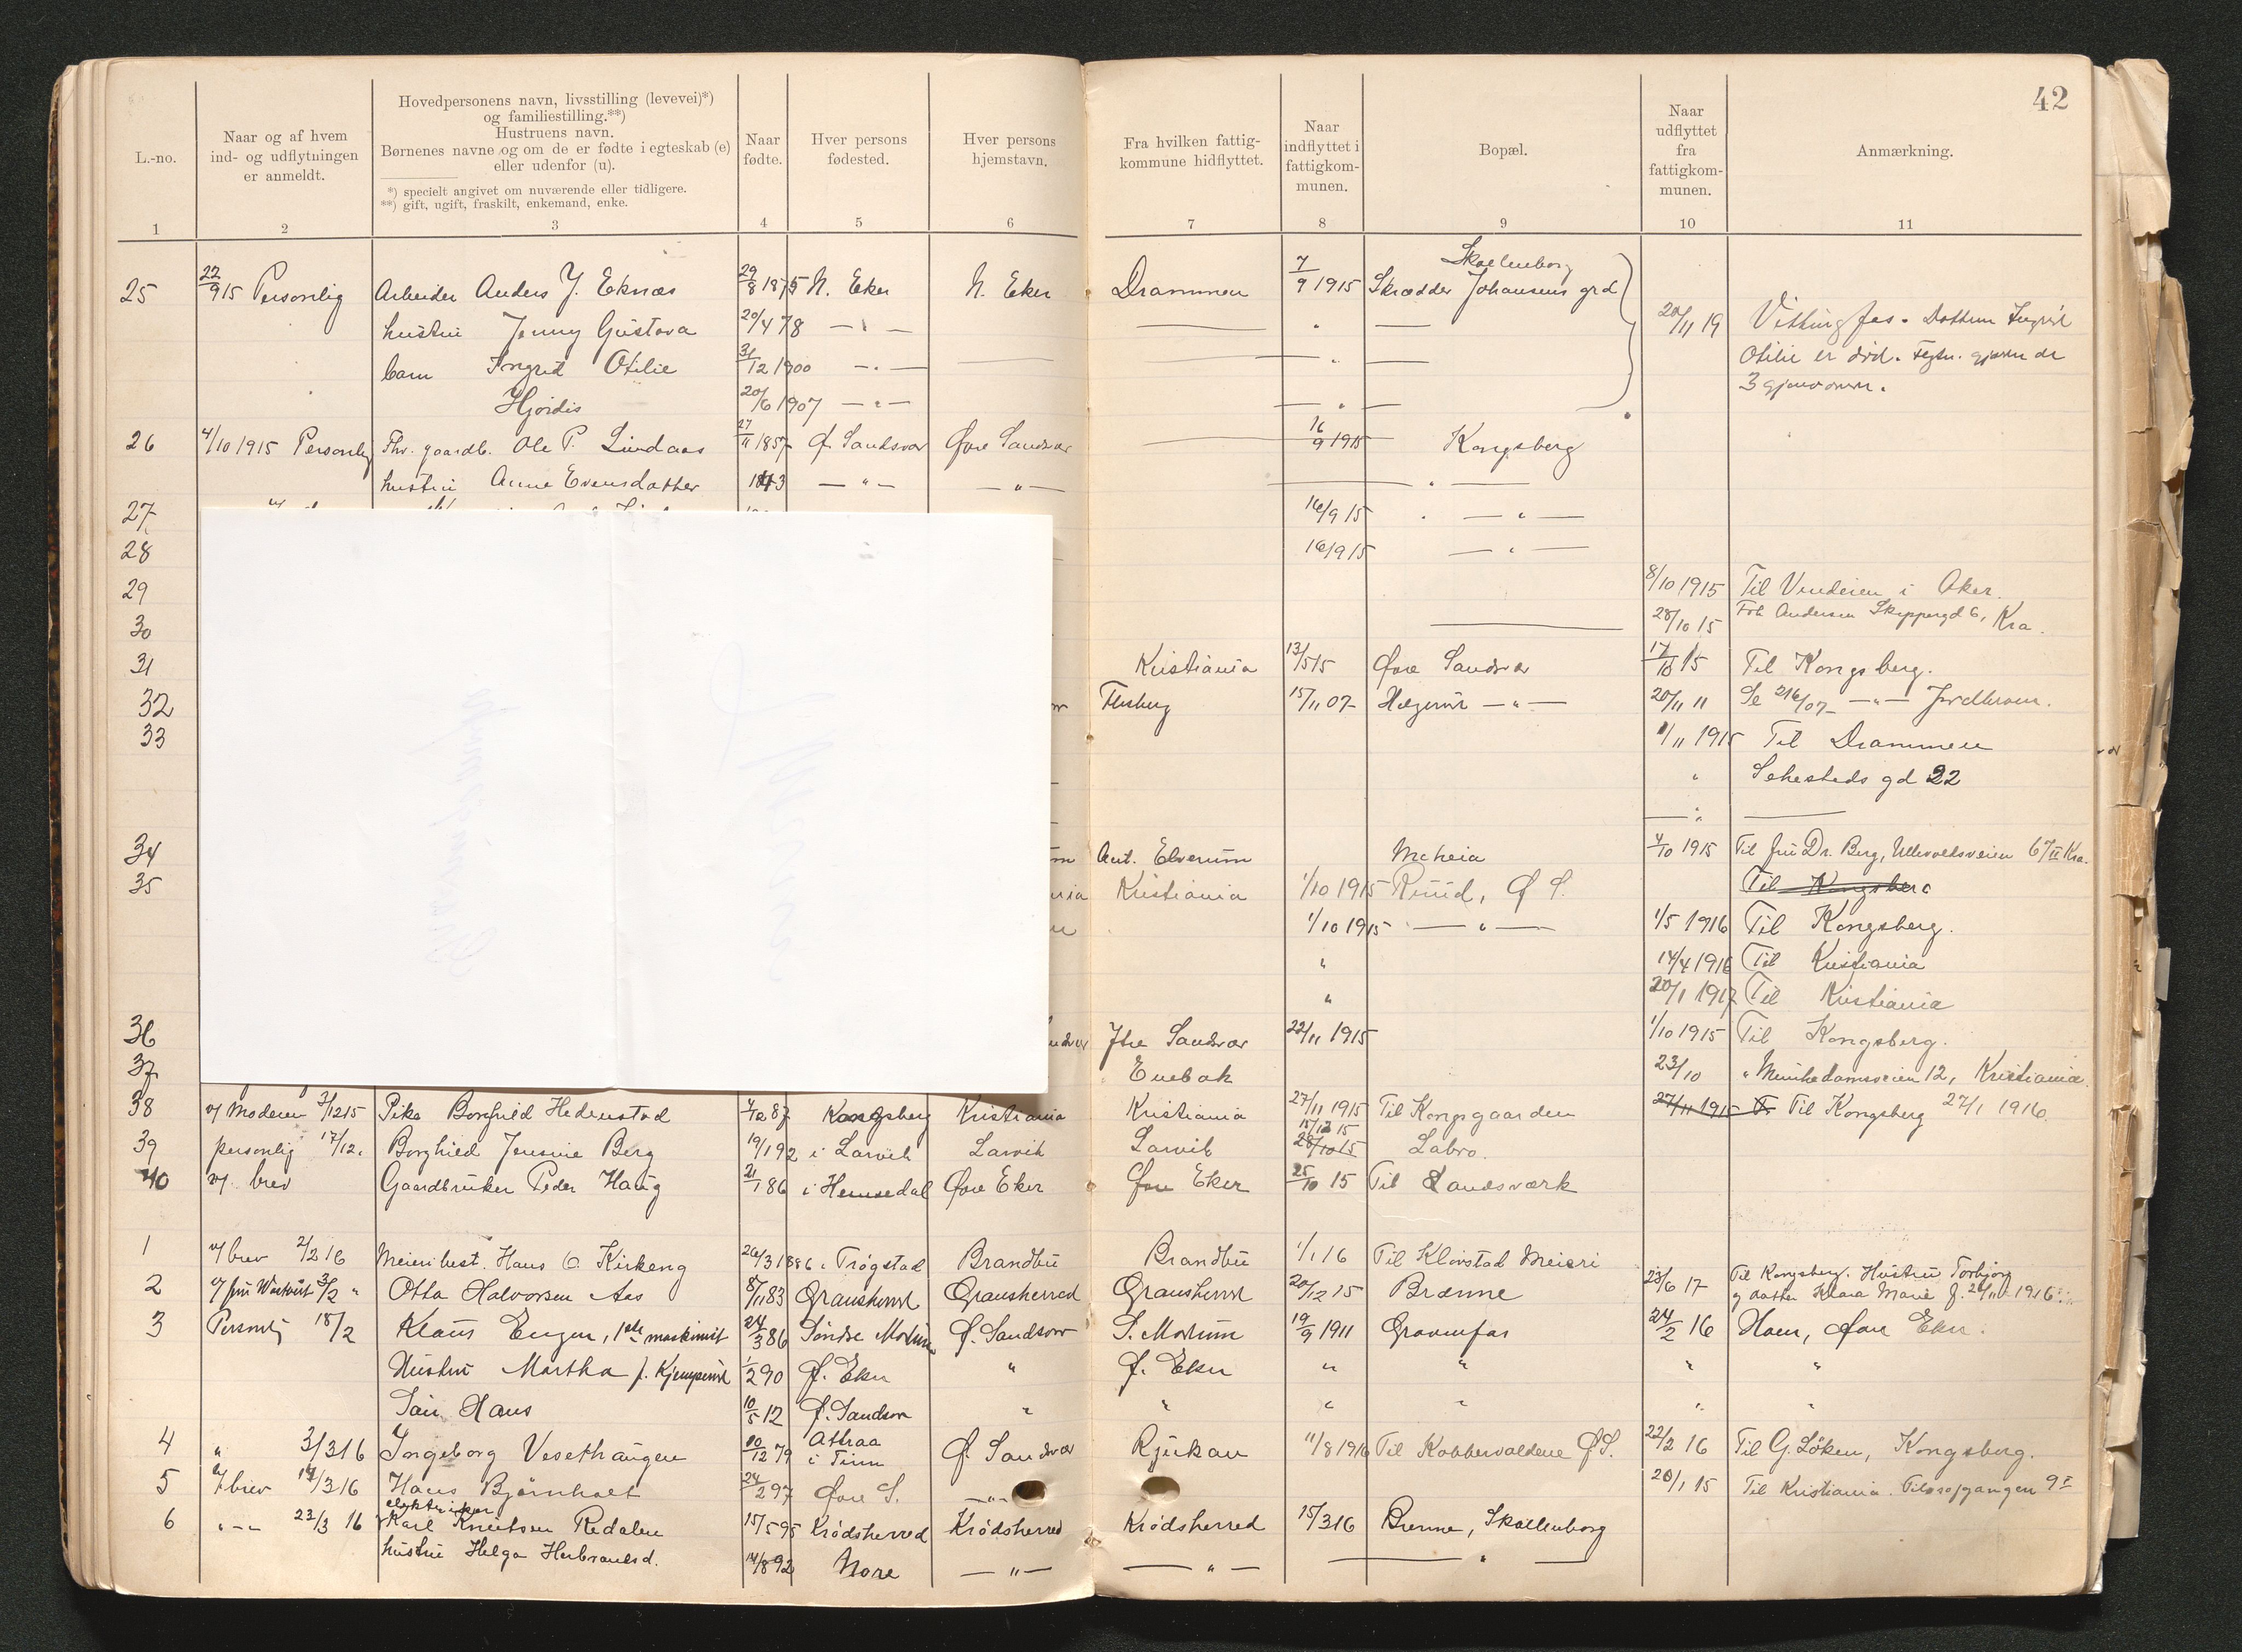 42
L.-no.
Naar og af hvem
ind- og udflytningen
er anmeldt.
Hovedpersonens navn, livsstilling (levevei)*)
og familiestilling.**)
Hustruens navn.
Børnenes navne og om de er fødte i egteskab (e)
eller udenfor (u).
*) specielt angivet om nuværende eller tidligere.
**) gift, ugift, fraskilt, enkemand, enke.
Naar
fødte.
Hver persons
fødested.
Hver persons
hjemstavn.
Fra hvilken fattig-
kommune hidflyttet.
Naar
indflyttet i
fattigkom-
munen.
Bopæl.
Naar
udflyttet
fra
fattigkom-
munen.
Anmærkning.
1 2 3 4 5 6 7 8 9 10 11
Skollenborg
25 22/9 15 Personlig Arbeider Anders J. Eknæs 29/8 1875 N. Eker N. Eker Drammen 7/9 1915 Skrædder Johansens grd
hustru Jenny Gustava 20/4 78 — " — 20/11 19 Vittingfos. Datteren Ingrid
barn Ingrid Otilie 31/12 1900 — " — Otilie er død.
Hjördis 20/6 1907 — " — 3
26 4/10 1915 Personlig Fhv. gaardb. Ole P. Lindaas 27/11 1857 Ø Sandsvær Øvre Sandsvær 16/9 1915 Kongsberg
hustru Anne Evensdatter 1843 — " — — " —
27 16/9 15 — " —
28 16/9 15 — " —
29 8/10 1915 Til Vinderen i Aker.
30 28/10 15 Andersen Skippergd 6, Kra.
31 Kristiania 13/5 15 Øvre Sandsvær 17/10 15 Til Kongsberg.
32 Flesberg 15/11 07 — " — 20/11 11 Se 216/07 — " —
33 1/11 1915 Til Drammen
" Sehesteds gd 22
— " —
34 Ant. Elverum Meheia 4/10 1915 Til fru Dr. Berg, Ullevoldsveien 67 II Kra.
35 Kristiania 1/10 1915 Ruud, Ø S. Til Kongsberg
1/10 1915 — " — 1/5 1916 Til Kongsberg.
" 14/4 1916 Til Kristiania
" 20/1 1917 Til Kristiania
36 Ytre Sandsvær 22/11 1915 1/10 1915 Til Kongsberg.
37 Enebak 23/10 " Munkedamsveien 12, Kristiania.
38 v/ Moderen 3/12 15 Pike Borghild Hedenstad 7/12 87 Kongsberg Kristiania Kristiania 27/11 1915 Til Kongsgaarden 27/11 1915 Til Kongsberg 27/1 1916.
15/12 15
39 personlig 17/12. Borghild Jensine Berg 19/1 92 i Larvik Larvik Larvik 28/10 15 Labro.
40 v/ brev Gaardbruker Peder Haug 21/1 86 i Hemsedal Øvre Eker Øvre Eker 25/10 15 Til Landsværk
1 v/ brev 2/2 16 Meieribest. Hans O. Kirkeng 26/3 1886 i Trøgstad Brandbu Brandbu 1/1 16 Til Klovstad Meieri
2 v/ fru 3/2 " Otto Halvorsen Aas 8/11 83 Gransherred Gransherred Gransherred 20/12 15 Brænne 23/6 17 Til Kongsberg. Hustru Torbjørg
og datter Klara Marie f. 26/11 1916
3 Personlig 18/2 Klaus Enger, 1ste maskinist 24/3 86 Søndre Modum Ø. Sandsvær S. Modum 19/9 1911 Gravenfos 24/2 16 Hoen, Øvre Eker.
Hustru Martha f. Kjemperud 1/2 90 Ø. Eker " Ø. Eker " " " "
Søn Hans 10/5 12 Ø. Sandsvær " " " " " "
4 " 3/3 16 Ingeborg Vesethaugen 10/12 79 Attraa
i Tinn Ø. Sandsvær Rjukan 11/8 1916 Til Kobbervoldene Ø S. 22/2 16 Til G. Löken, Kongsberg.
5 v/ brev 14/3 16 Hans Björnholt 24/2 97 Øvre S. — " — 20/1 15 Til Kristiania. Filosofgangen 9 I
elektriker
6 " — " 23/3 16 Karl Knutsen Redalen 15/5 95 Krødsherred Krødsherred Krødsherred 15/3 16 Brenne, Skollenborg
hustru Helga Herbrandsd. 14/8 92 Nore — " — — " — — " —